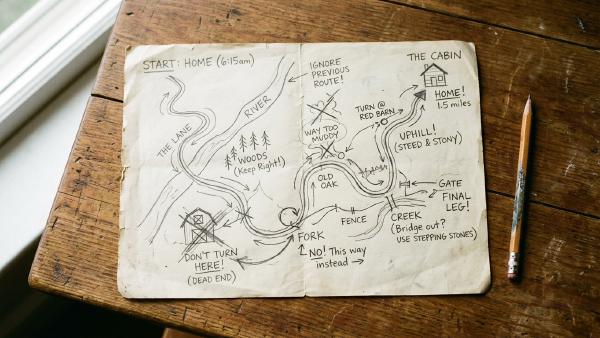 START: HOME (6:15am)
IGNORE
PREVIOUS
ROUTE!
THE CABIN
HOME!
1.5 miles
RIVER
TURN @
RED BARN
THE LANE
WAY TOO
MUDDY
UPHILL!
(STEED & STONY)
WOODS
(Keep Right!)
OLD
OAK
GATE
FINAL
LEG!
FENCE
CREEK
(Bridge out?
USE STEPPING STONES)
FORK
NO! This way
instead →
DON'T TURN
HERE!
(DEAD END)